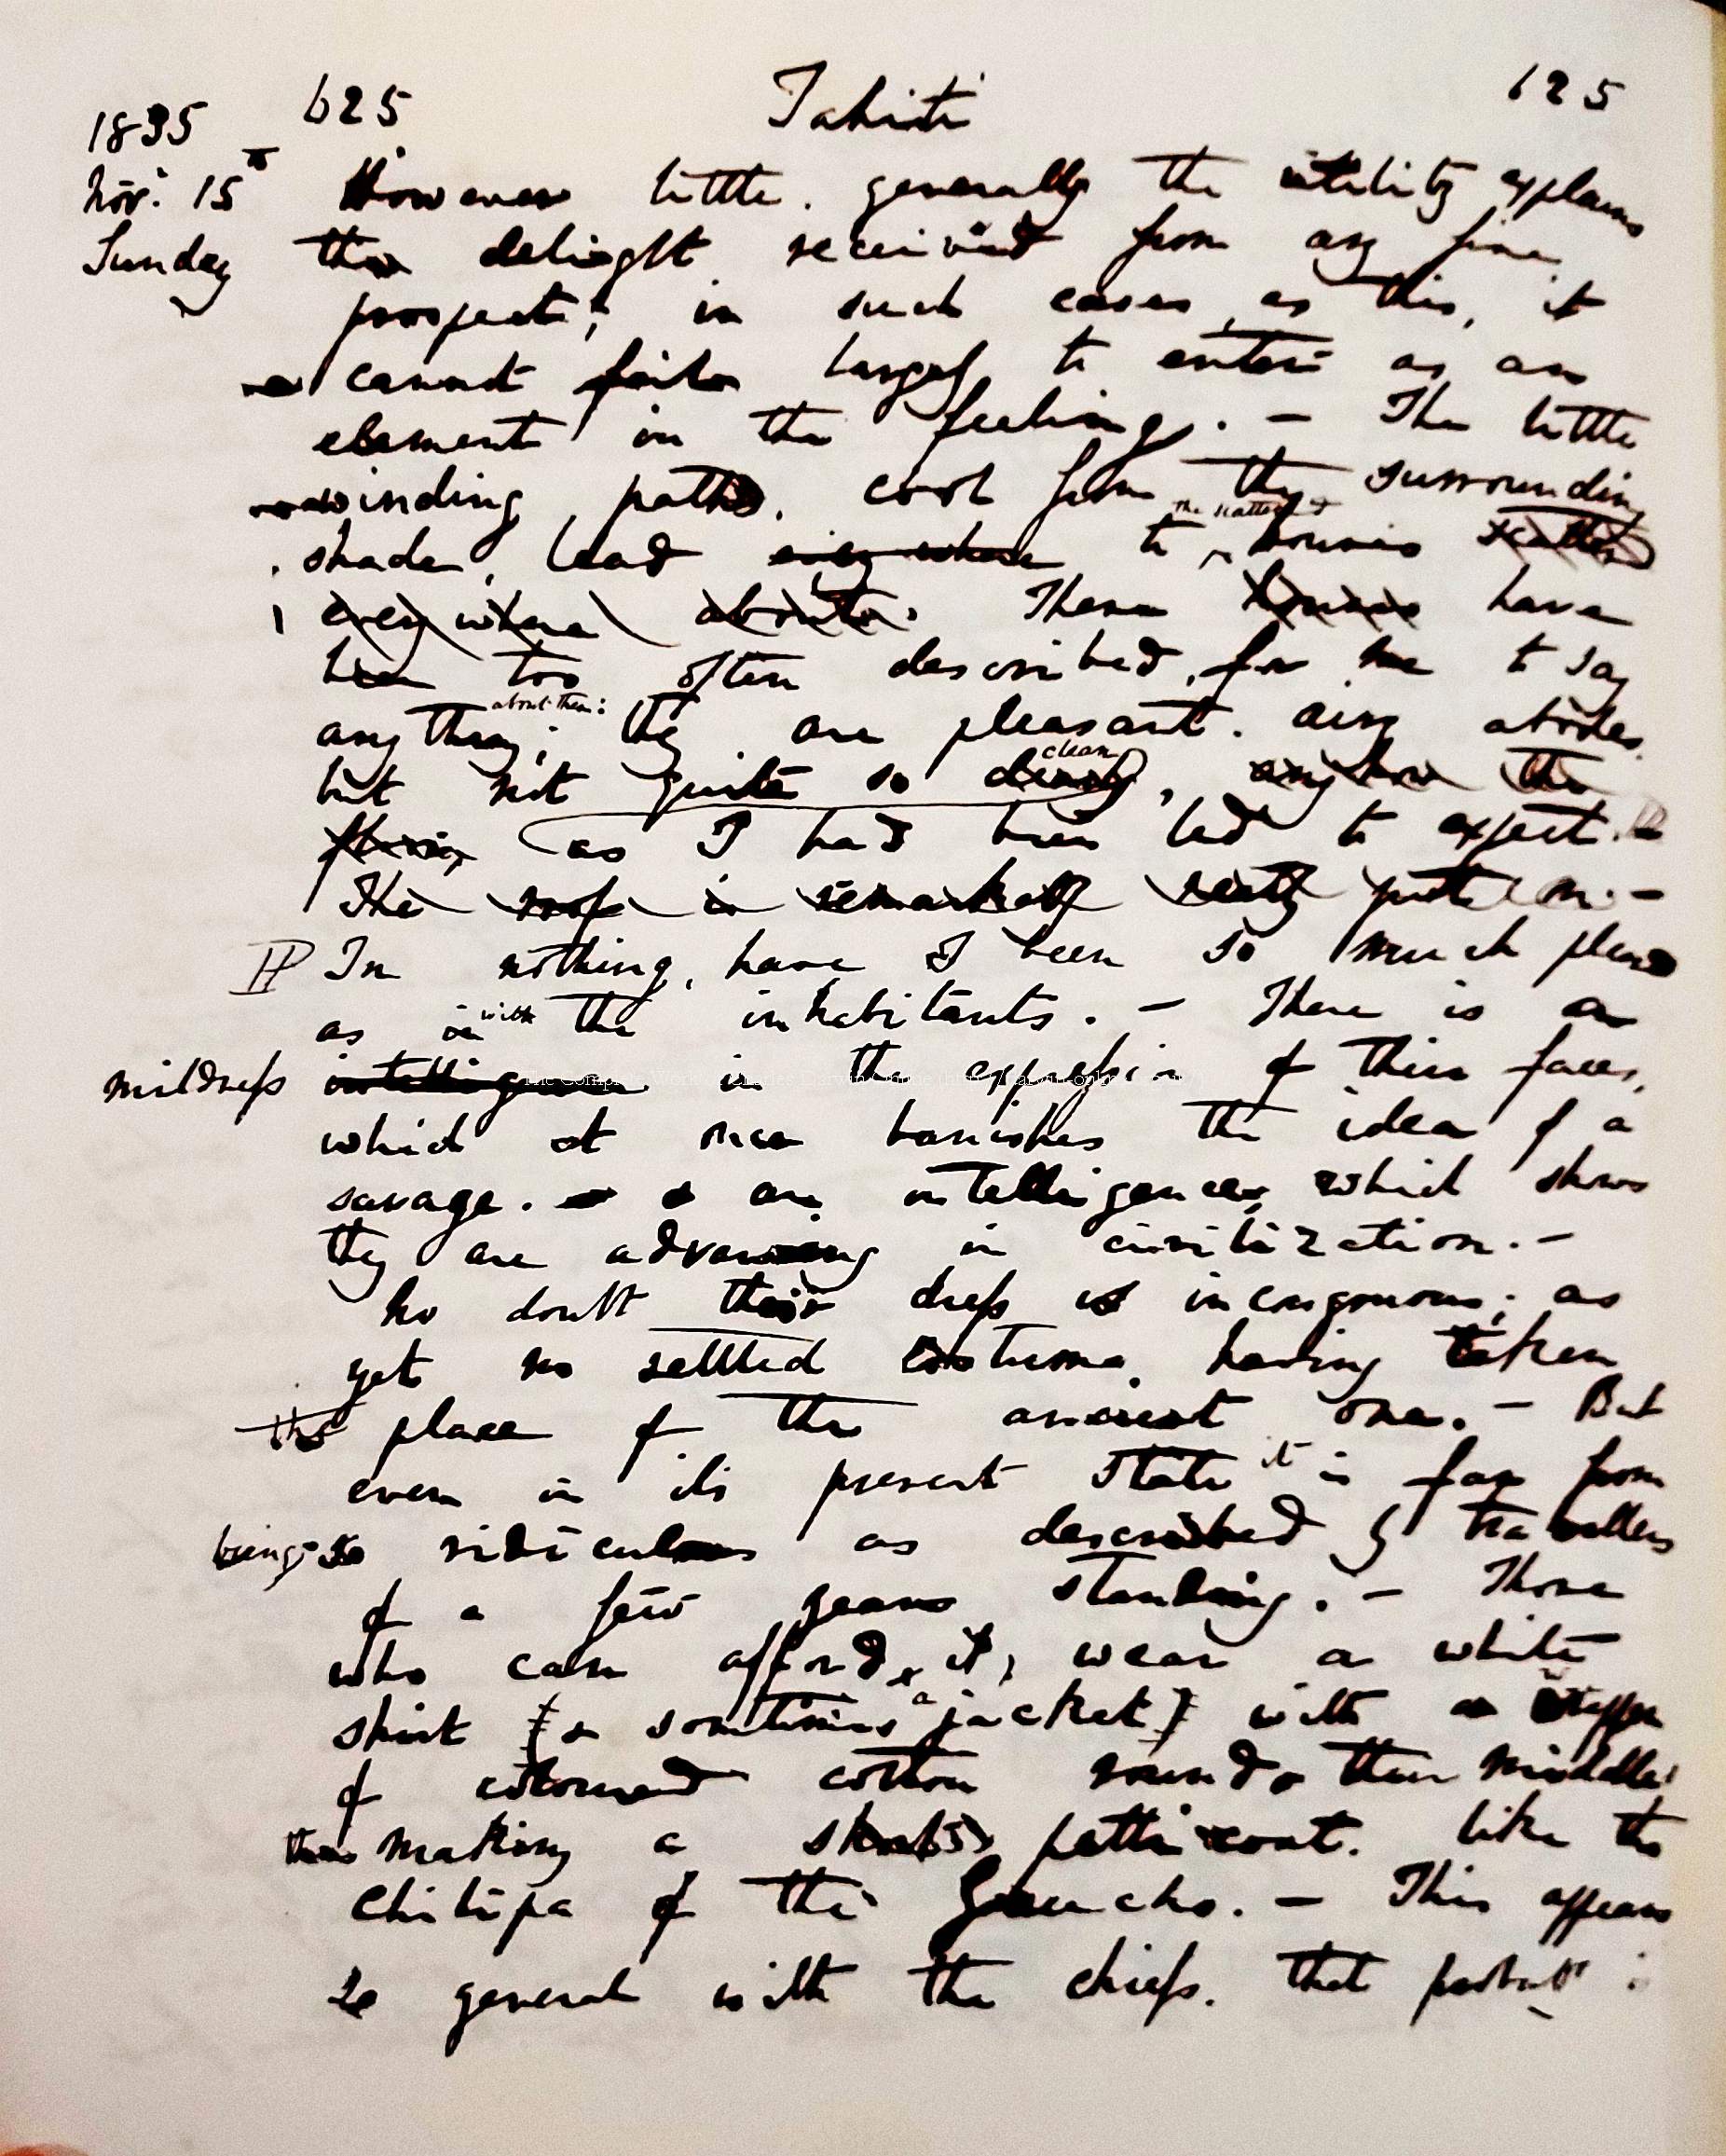 1835 625 Tahiti 125
Nov: 15th However little generally the utility explains
Sunday the delight received from any fine
prospect; in such cases as this, it
cannot fail largely to enter as an
element in the feeling. — The little
winding paths, cool from the surrounding
shade, lead every where to the scattered houses scattered
every where about. These houses have
been too often described, for me to say
any thing about them: they are pleasant, airy abodes,
but not quite so clean
as I had been led to expect.
The roof is remarkably neatly put on. —
In nothing, have I been so much pleased
as in with the inhabitants. — There is a
mildness intelligence in the expression of their faces,
which at once banishes the idea of a
savage. & an intelligence, which shows
they are advancing in civilization. —
No doubt their dress is incongruous; as
yet no settled costume having taken
the place of the ancient one. — But
even in its present state it is far from
being so ridiculous as described by travellers
of a few years standing. — Those
who can afford it, wear a white
shirt (& sometimes a jacket) with a wrapper
of coloured cotton round their middles
thus making a short petticoat. like the
Chilipa of the Gaucho. — This appears
so general with the chiefs. that probably